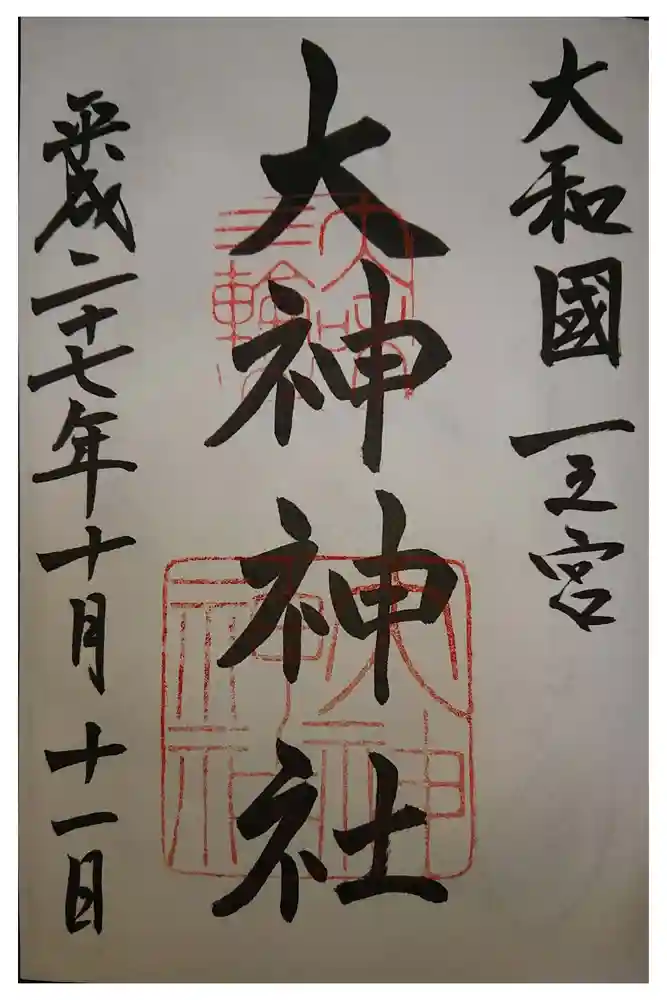 大和國一之宮
大神神社
三輪
大神
神社
平成二十七年十月十一日